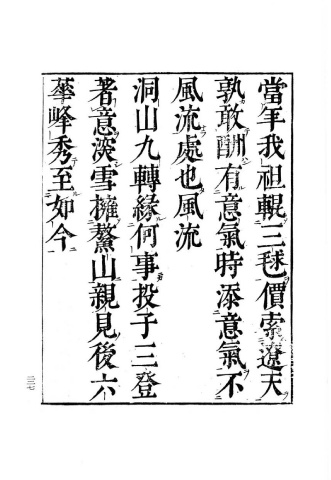 當年我祖輥三毬價索遼天
孰敢酬有意氣時添意氣不
風流處也風流
洞山九轉緣何事投子三登
著意深雪擁鰲山親見後六
華峰秀至如今
三七